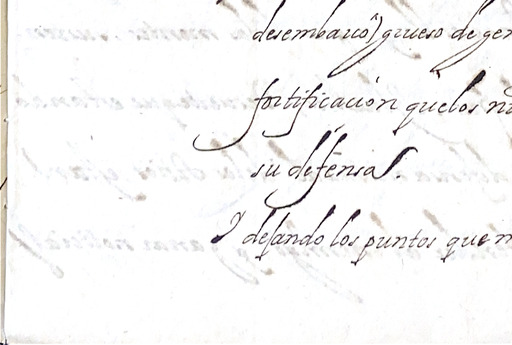 desembarcó) grueso de gen
fortificación que los n
su defensa.
Y dejando los puntos que m